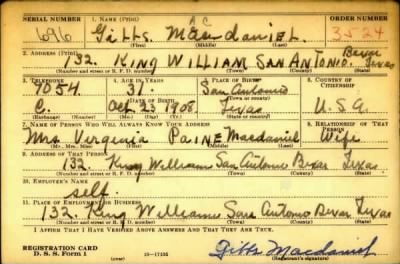 SERIAL NUMBER 1. NAME (Print) ORDER NUMBER
696 Gibbs. MacDaniel. 3524
AC
(First) (Middle) (Last)
2. ADDRESS (Print)
132. KING WILLIAM SAN ANTONIO. Bexar Texas
(Number and street or R. F. D. number) (Town) (County) (State)
3. TELEPHONE 4. AGE IN YEARS 5. PLACE OF BIRTH 6. COUNTRY OF CITIZENSHIP
7054 31. San Antonio
(Town or county)
C. Oct 23 1908. Texas U.S.A
(Exchange) (Number) (Mo.) (Day) (Yr.) (State or country)
7. NAME OF PERSON WHO WILL ALWAYS KNOW YOUR ADDRESS 8. RELATIONSHIP OF THAT PERSON
Mrs Virginia PAINE Macdaniel Wife
(Mr., Mrs., Miss) (First) (Middle) (Last)
9. ADDRESS OF THAT PERSON
132. King William San Antonio Bexar Texas
(Number and street or R. F. D. number) (Town) (County) (State)
10. EMPLOYER'S NAME
self.
11. PLACE OF EMPLOYMENT OR BUSINESS
132. King William San Antonio Bexar Texas
(Number and street or R. F. D. number) (Town) (County) (State)
I AFFIRM THAT I HAVE VERIFIED ABOVE ANSWERS AND THAT THEY ARE TRUE.
REGISTRATION CARD
D. S. S. Form 1 16—17105 Gibbs Macdaniel
(Registrant's signature)